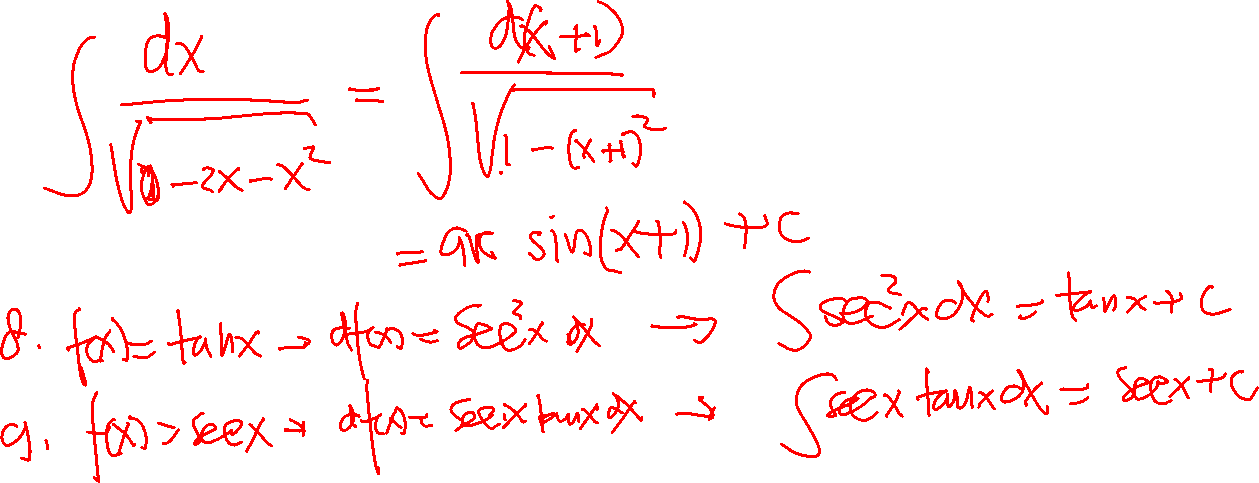 ∫ dx / √(0 - 2x - x²) = ∫ d(x+1) / √(1 - (x+1)²)
= arc sin(x+1) + c
8. f(x) = tan x → df(x) = sec² x dx → ∫ sec² x dx = tan x + c
9. f(x) = sec x → df(x) = sec x tan x dx → ∫ sec x tan x dx = sec x + c